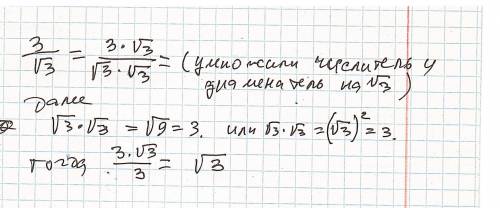 3/√3 = 3·√3/√3·√3 = (умножили числитель и
знаменатель на √3)
далее
√3·√3 = √9 = 3. или √3·√3 = (√3)² = 3.
тогда 3·√3/3 = √3